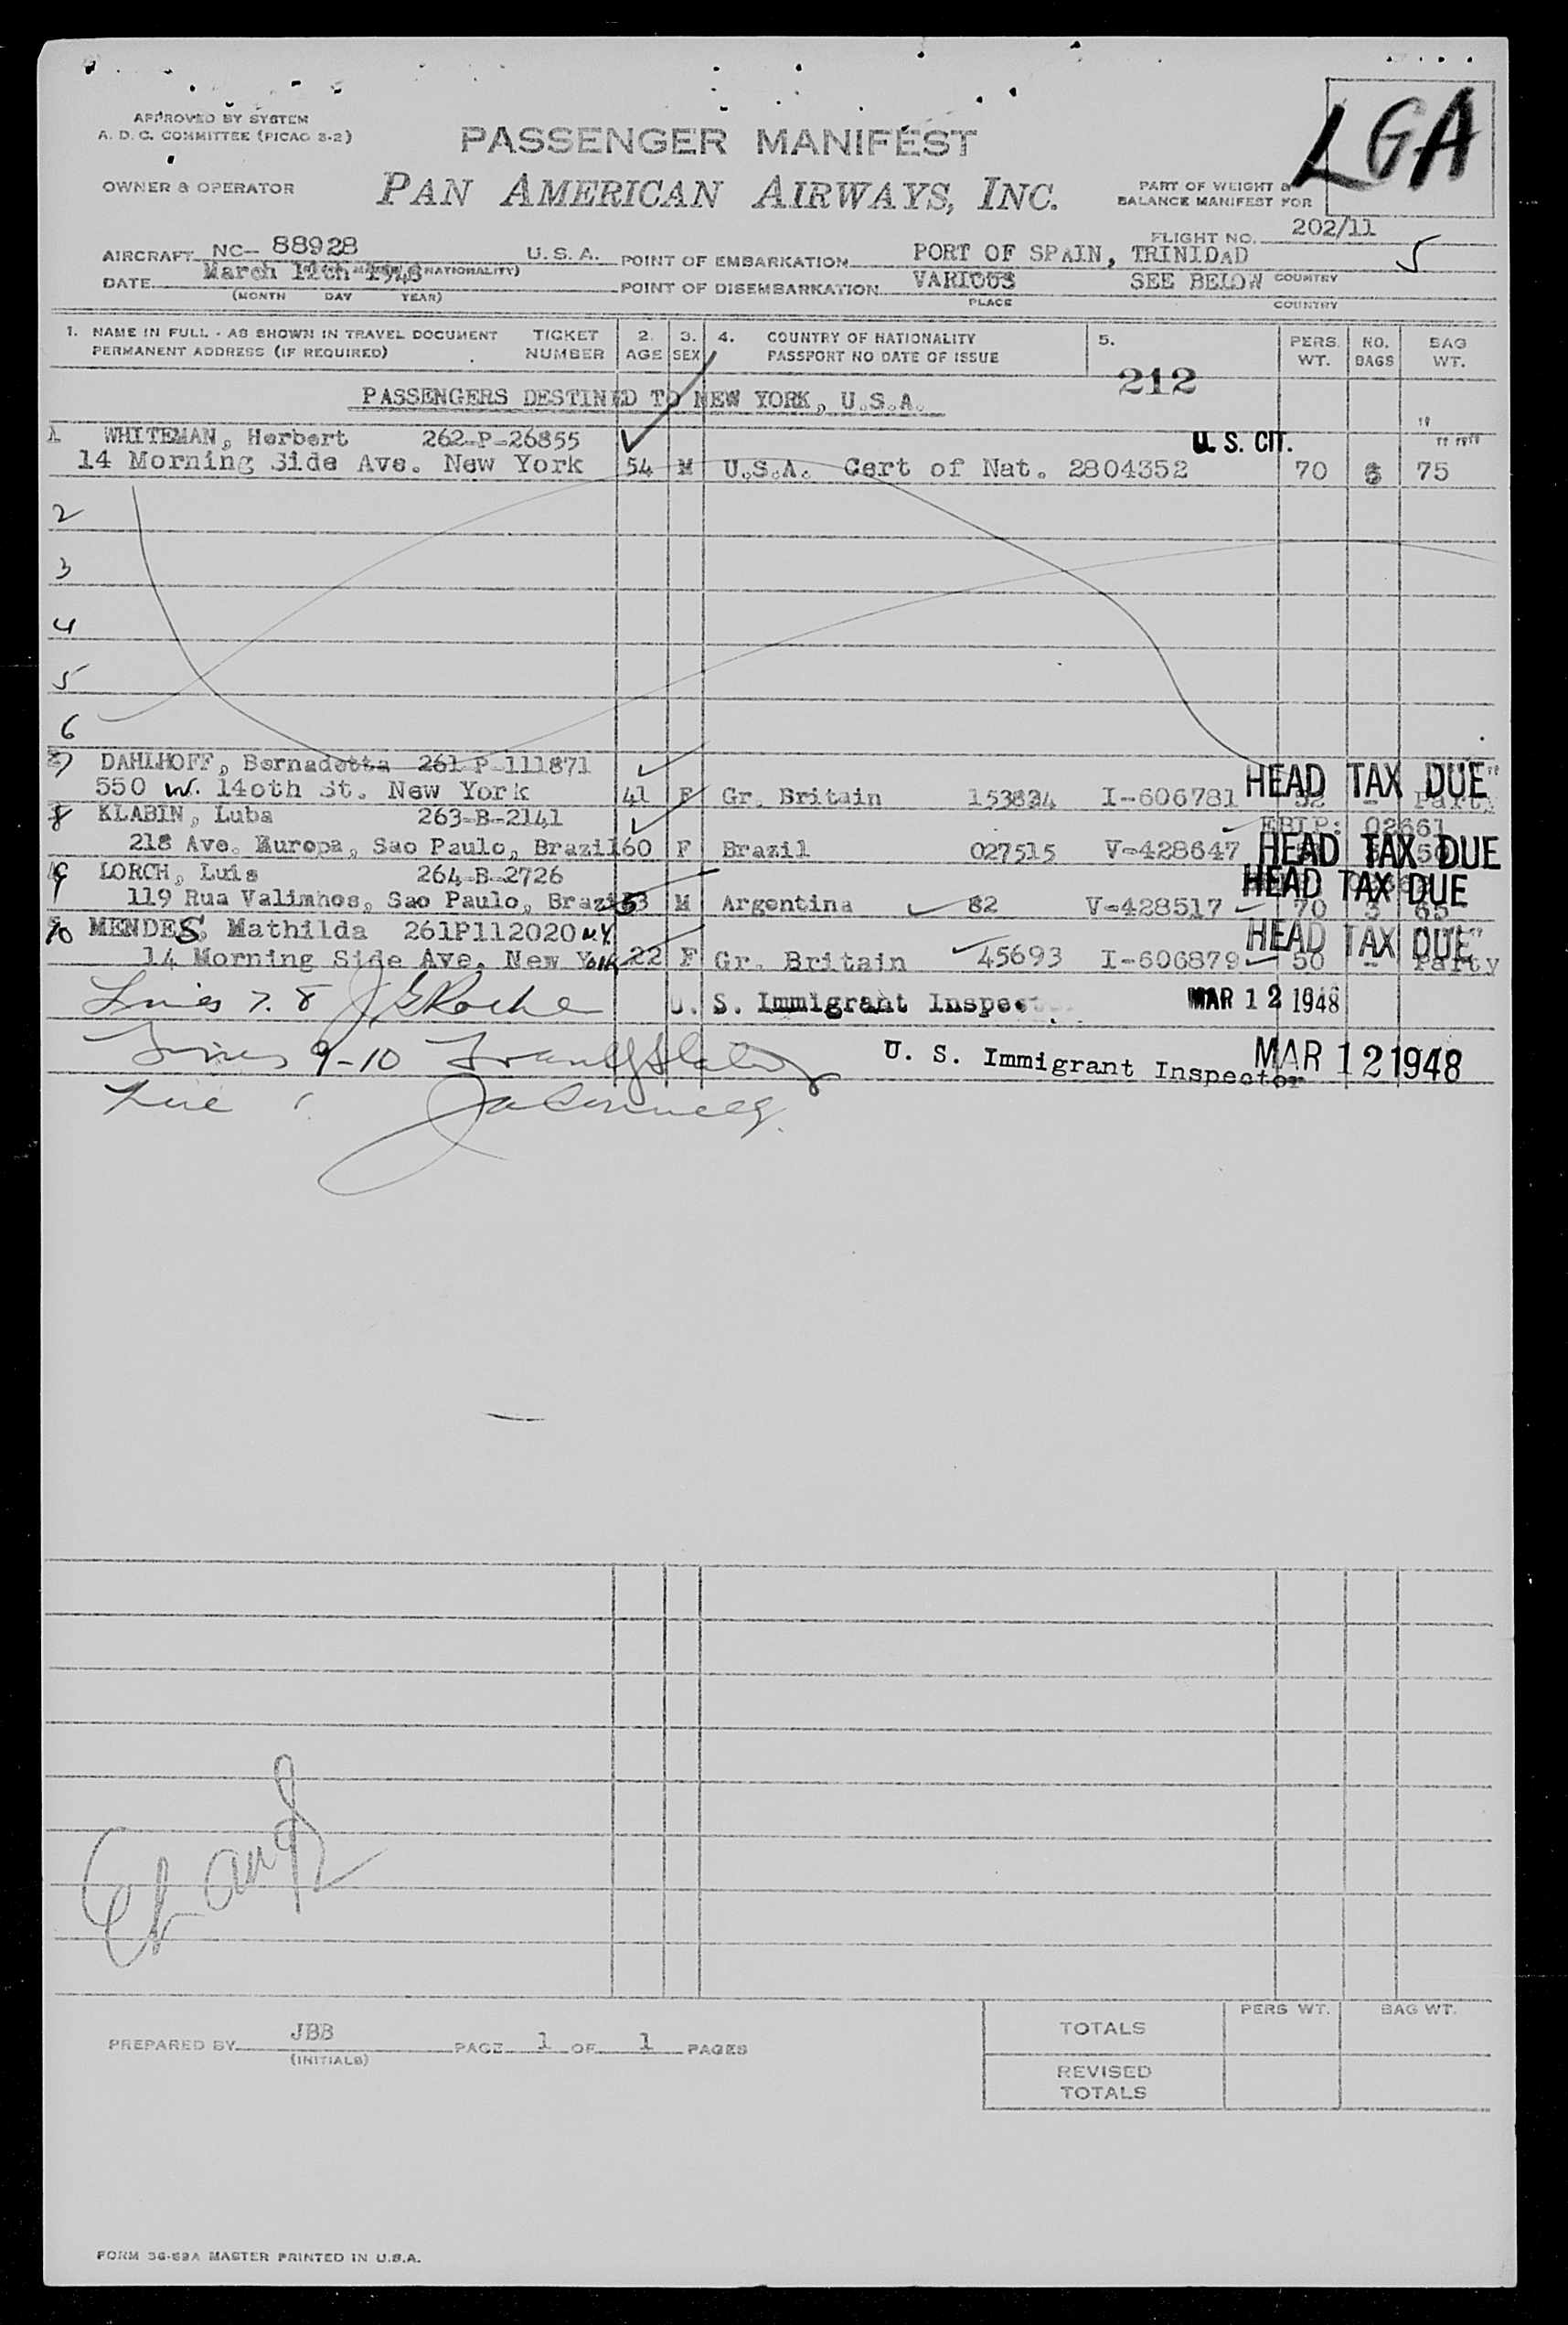 APPROVED BY SYSTEM
A. D. C. COMMITTEE (PICAO 3-2)
PASSENGER MANIFEST
LGA
OWNER & OPERATOR
PAN AMERICAN AIRWAYS, INC.
PART OF WEIGHT &
BALANCE MANIFEST FOR
FLIGHT NO. 202/11
AIRCRAFT NC- 88928 U. S. A. POINT OF EMBARKATION PORT OF SPAIN, TRINIDAD 5
NATIONALITY) COUNTRY
DATE March 1948 POINT OF DISEMBARKATION VARIOUS SEE BELOW
(MONTH DAY YEAR) PLACE COUNTRY
1. NAME IN FULL - AS SHOWN IN TRAVEL DOCUMENT TICKET 2. 3. 4. COUNTRY OF NATIONALITY 5. PERS. NO. BAG
PERMANENT ADDRESS (IF REQUIRED) NUMBER AGE SEX PASSPORT NO DATE OF ISSUE WT. BAGS WT.
212
PASSENGERS DESTINED TO NEW YORK, U.S.A.
1 WHITEMAN, Herbert 262-P-26855 U. S. CIT.
14 Morning Side Ave. New York 54 M U.S.A. Cert of Nat. 2804352 70 75
2
3
4
5
6
7 DAHLHOFF, Bernadetta 261-P-111871 HEAD TAX DUE
550 W. 140th St. New York 41 F Gr. Britain 153824 I-606781 52 - Party
8 KLABIN, Luba 263-B-2141 EBTP: 02661
218 Ave. Europa, Sao Paulo, Brazil 60 F Brazil 027515 V-428647 HEAD TAX DUE
9 LORCH, Luis 264-B-2726 HEAD TAX DUE
119 Rua Valinhos, Sao Paulo, Brazil 53 M Argentina 82 V-428517 70 3 65
10 MENDES, Mathilda 261P112020 N.Y. HEAD TAX DUE
14 Morning Side Ave. New York 22 F Gr. Britain 45693 I-606879 50 - Party
Lines 7. 8 J G Roche U. S. Immigrant Inspector MAR 12 1948
Lines 9-10 U. S. Immigrant Inspector MAR 12 1948
Line
PERS WT. BAG WT.
TOTALS
PREPARED BY JBB PAGE 1 OF 1 PAGES
(INITIALS)
REVISED
TOTALS
FORM 36-59A MASTER PRINTED IN U.S.A.